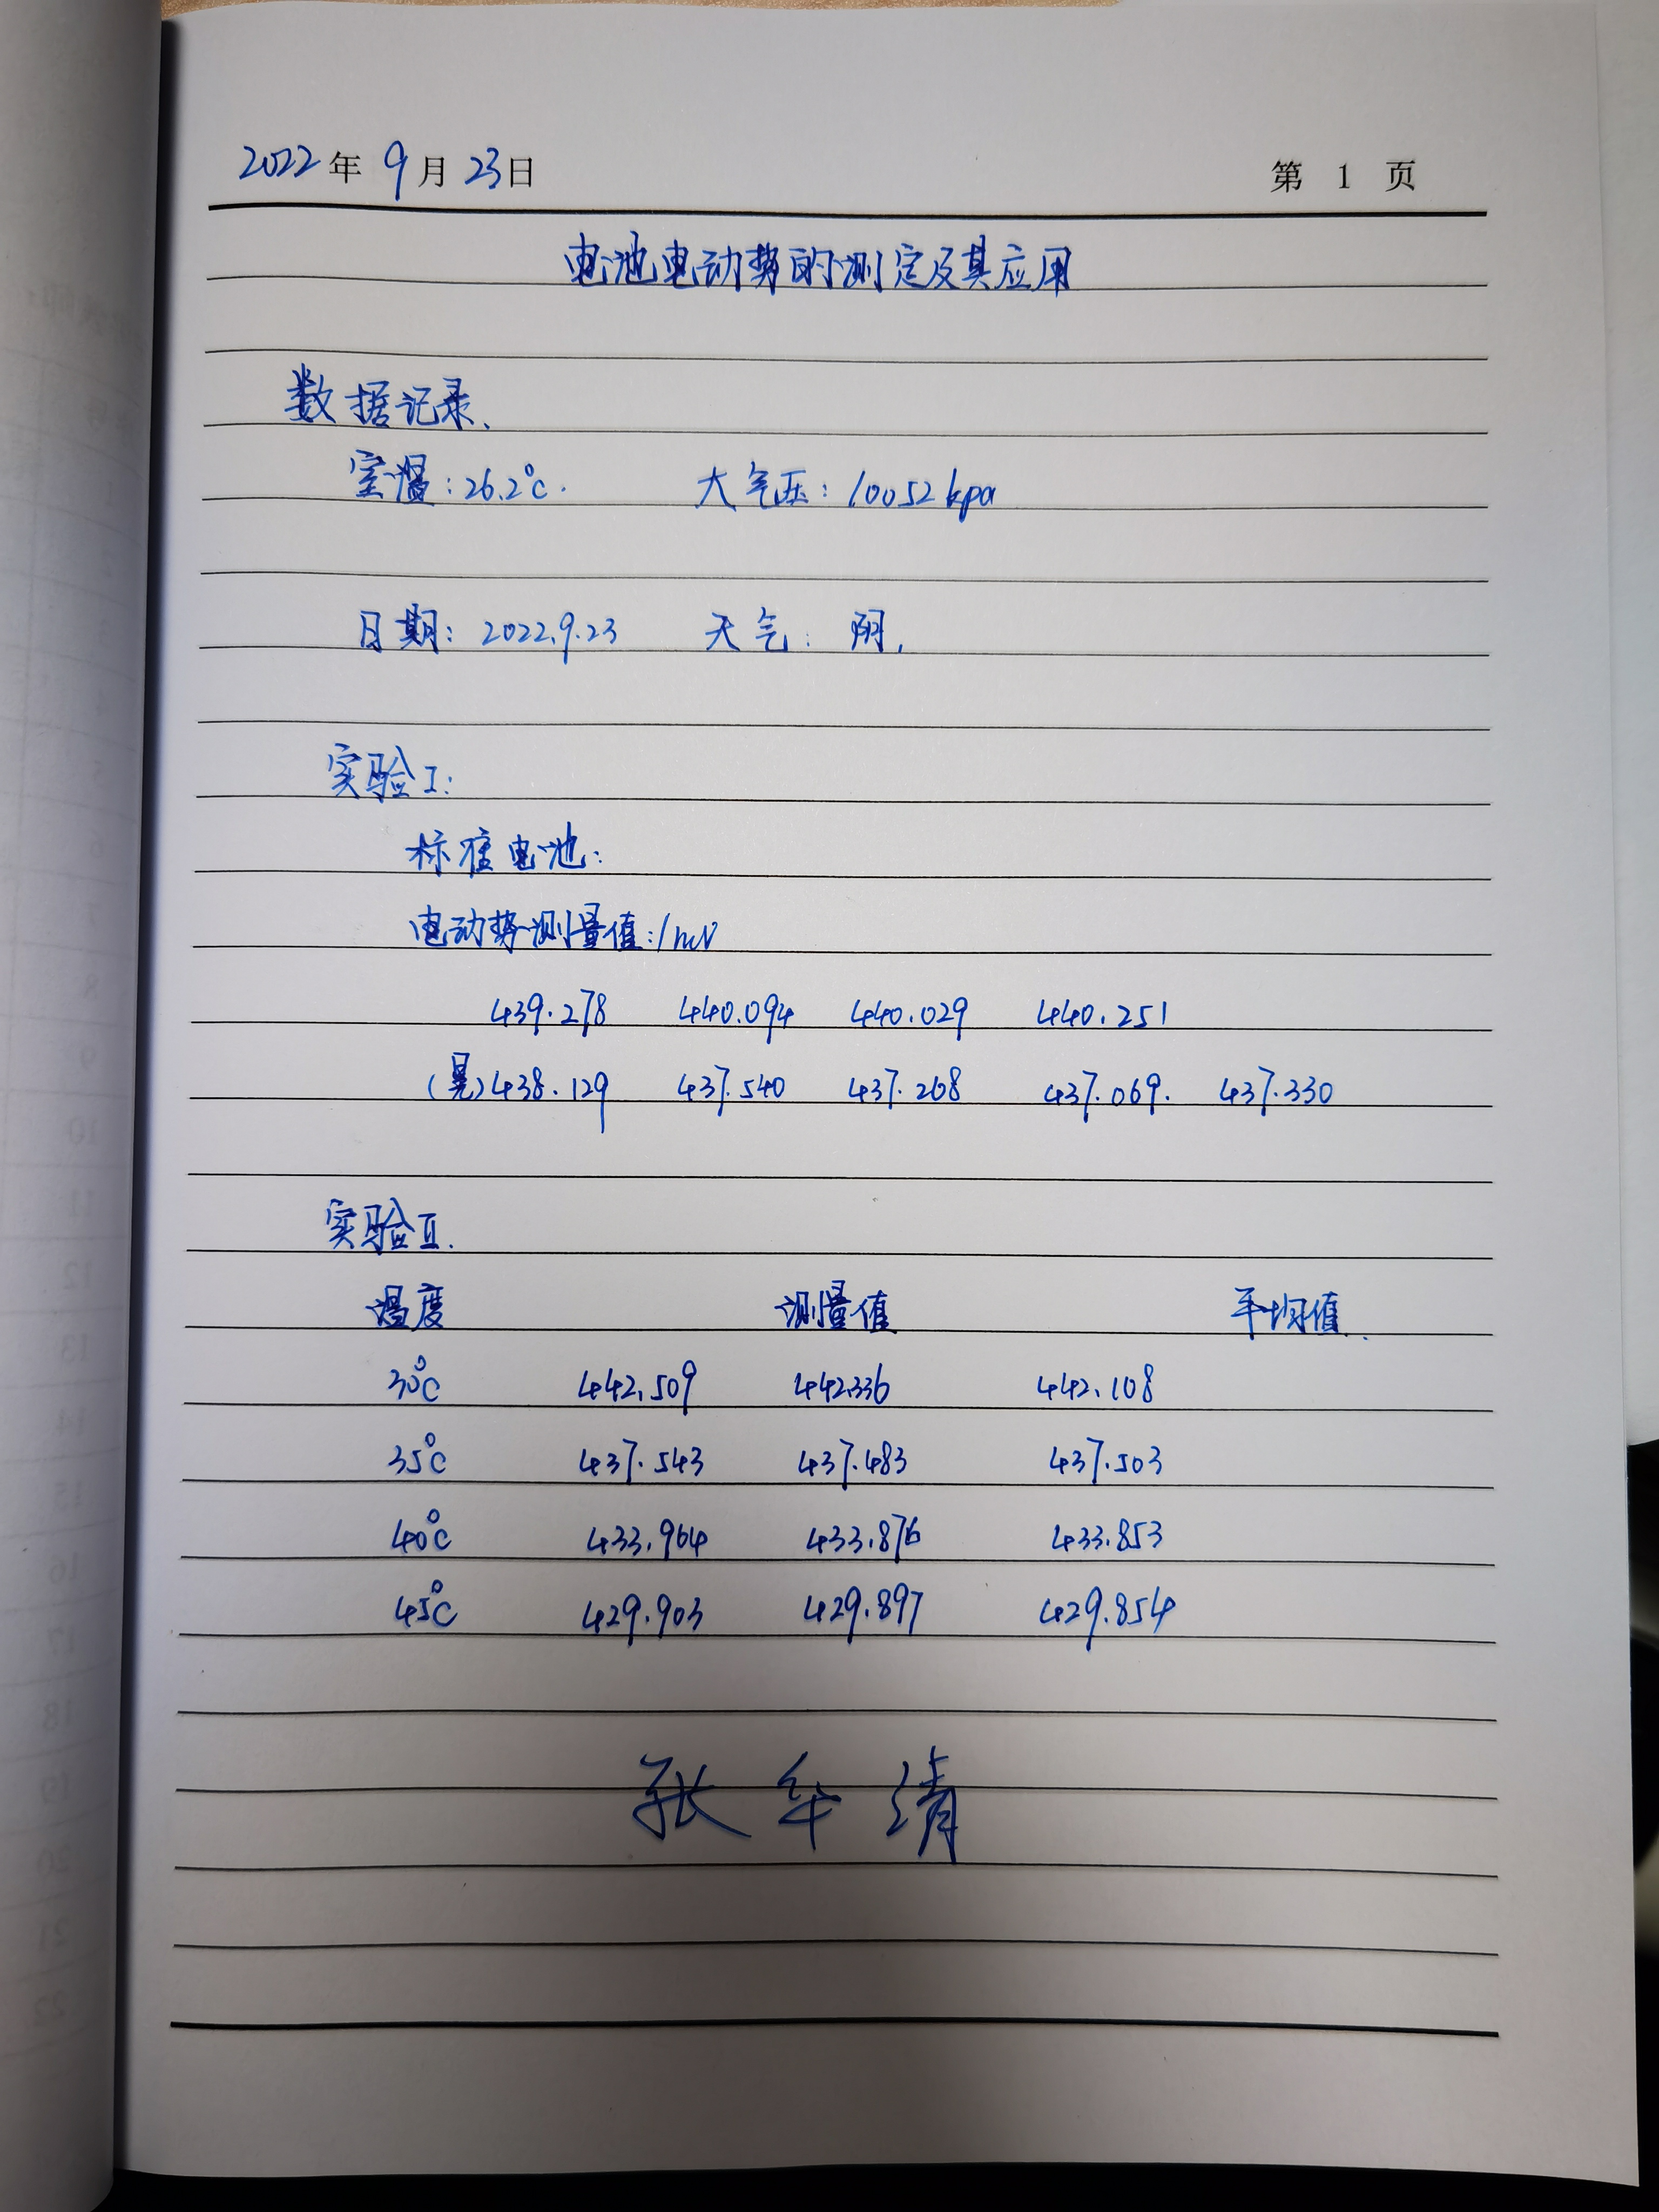 2022年 9月 23日 第 1 页
电池电动势的测定及其应用
数据记录、
室温:26.2℃. 大气压:10052 kpa
日期:2022.9.23 天气:阴.
实验I:
标准电池:
电动势测量值:/mV
439.278 440.094 440.029 440.251
(晃)438.129 437.540 437.268 437.069. 437.330
实验II.
温度 测量值 平均值.
30℃ 442.509 442.336 442.108
35℃ 437.543 437.483 437.503
40℃ 433.964 433.876 433.853
45℃ 429.903 429.897 429.854
张 清